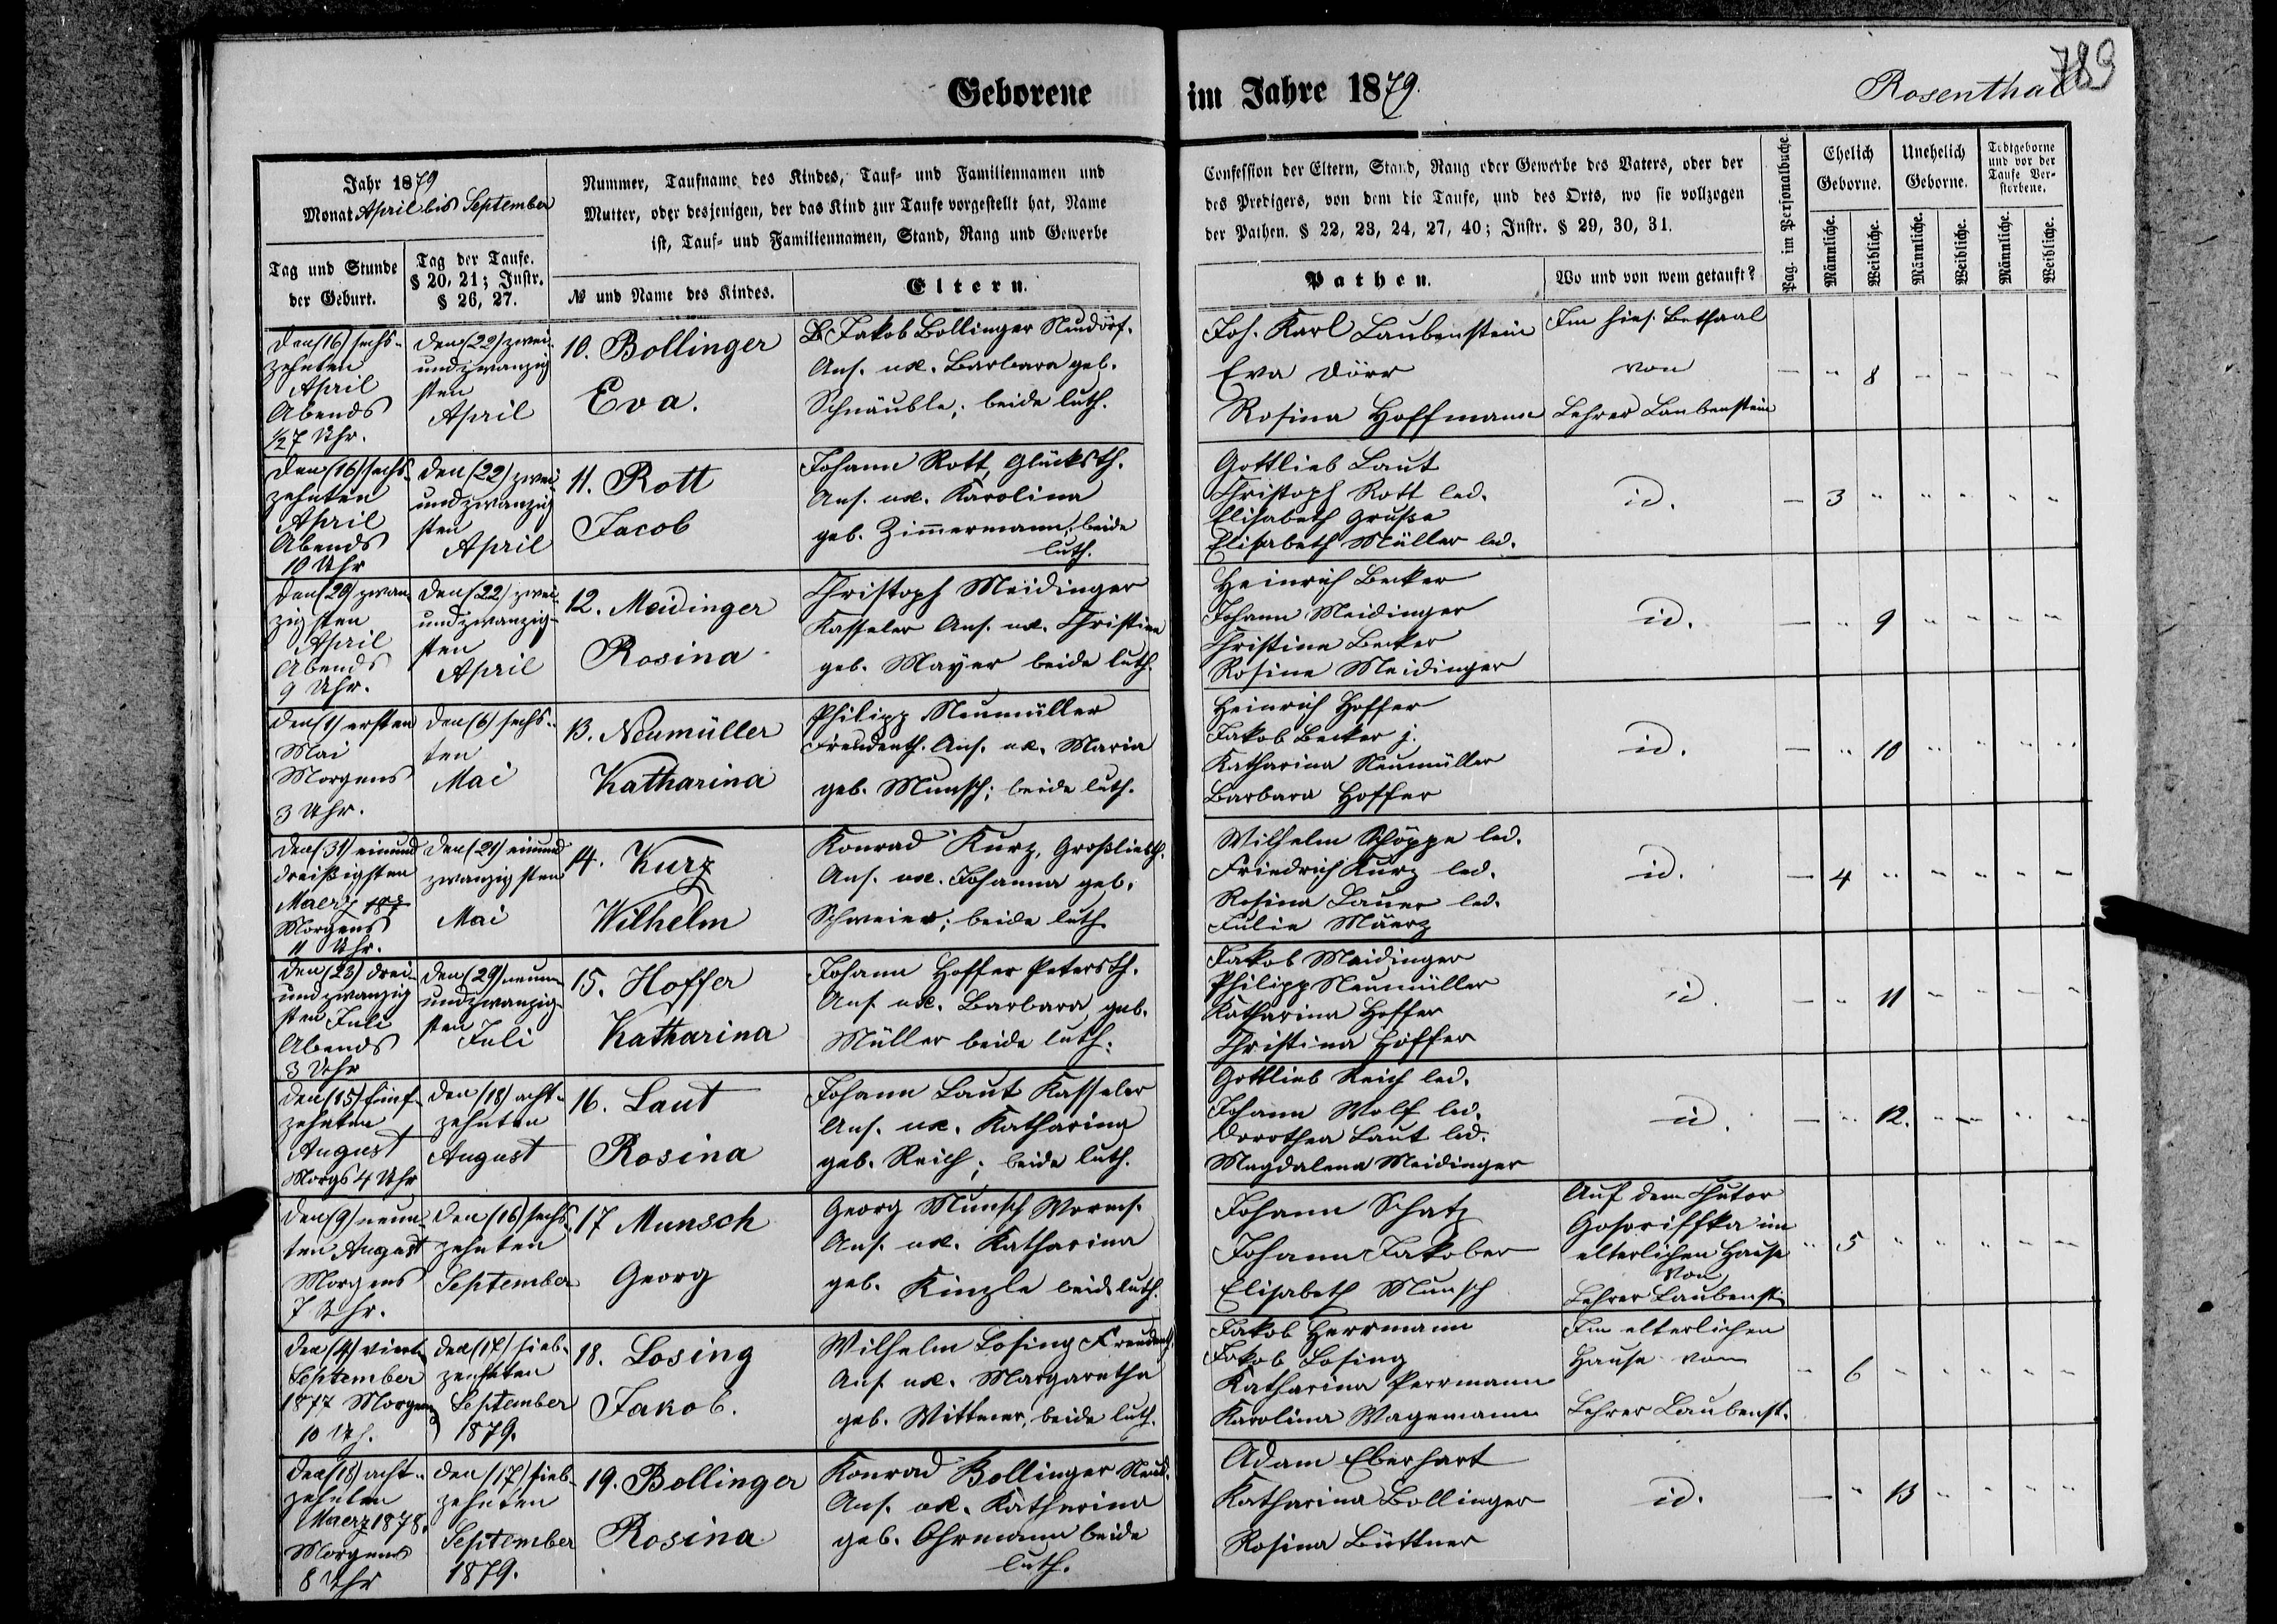 Geborene im Jahre 1879.
Rosenthal
789
Jahr 1879
Monat April bis September
Tag und Stunde der Geburt.
Tag der Taufe. § 20, 21; Instr. § 26, 27.
Nummer, Taufname des Kindes, Tauf- und Familiennamen und
Mutter, oder desjenigen, der das Kind zur Taufe vorgestellt hat, Name
ist, Tauf- und Familiennamen, Stand, Rang und Gewerbe
№ und Name des Kindes.
Eltern.
Confession der Eltern, Stand, Rang oder Gewerbe des Vaters, oder der
des Predigers, von dem die Taufe, und des Orts, wo sie vollzogen
der Pathen. § 22, 23, 24, 27, 40; Instr. § 29, 30, 31.
Pathen.
Wo und von wem getauft?
Pag. im Personalbuche
Ehelich Geborne.
Unehelich Geborne.
Todtgeborne und vor der Taufe Verstorbene.
Männliche.
Weibliche.
Männliche.
Weibliche.
Männliche.
Weibliche.
den (16) sechs-
zehnten
April
Abends
½7 Uhr.
den (22) zwei-
undzwanzig
sten
April
10. Bollinger
Eva.
Jakob Bollinger Neudorf.
Ans. ux. Barbara geb.
Schnäuble; beide luth.
Joh. Karl Laubenstein
Eva Dörr
Rosina Hoffmann
Im hies. Bethaal
von
Lehrer Laubenstein
— " 8 " " " "
den (16) sechs-
zehnten
April
Abends
10 Uhr
den (22) zwei
undzwanzig
sten
April
11. Rott
Jacob
Johann Rott, Glücksth.
Ans. ux. Karolina
geb. Zimmermann; beide
luth.
Gottlieb Laut
Christoph Rott led.
Elisabeth Gruße
Elisabeth Müller led.
id.
— 3 " " " " "
den (20) zwan-
zigsten
April
Abends
9 Uhr.
den (22) zwei-
undzwanzig-
sten
April
12. Meidinger
Rosina
Christoph Meidinger
Kasseler Ans. ux. Christina
geb. Mayer beide luth.
Heinrich Becker
Johann Meidinger
Christina Becker
Rosina Meidinger
id.
— " 9 " " " "
den (1) ersten
Mai
Morgens
3 Uhr.
den (6) sechs-
ten
Mai
13. Neumüller
Katharina
Philipp Neumüller
Freudenth. Ans. ux. Maria
geb. Munsch; beide luth.
Heinrich Hoffer
Jakob Becker j.
Katharina Neumüller
Barbara Hoffer
id.
— " 10 " " " "
den (31) einund
dreißigsten
Maerz
Morgens
11 Uhr.
den (21) einund
zwanzigsten
Mai
14. Kurz
Wilhelm
Konrad Kurz, Großliebth.
Ans. ux. Johanna geb.
Schweier; beide luth
Wilhelm Schöppe led.
Friedrich Kurz led.
Rosina Lauer led.
Julie Maerz
id.
— 4 " " " " "
den (23) drei-
undzwanzig
sten Juli
Abends
3 Uhr
den (29) neun-
undzwanzig-
sten
Juli
15. Hoffer
Katharina
Johann Hoffer Petersth.
Ans. ux. Barbara geb.
Müller beide luth.
Jakob Meidinger
Philipp Neumüller
Katharina Hoffer
Christina Hoffer
id.
— " 11 " " " "
den (15) fünf-
zehnten
August
Morgs 4 Uhr
den (18) acht-
zehnten
August
16. Laut
Rosina
Johann Laut Kasseler
Ans. ux. Katharina
geb. Reich; beide luth.
Gottlieb Reich led.
Johann Wolf led.
Dorothea Laut led.
Magdalena Meidinger
id.
— " 12. " " " "
den (9) neun-
ten August
Morgens
7 Uhr.
den (16) sechs-
zehnten
September
17 Munsch
Georg
Georg Munsch Worms.
Ans. ux. Katharina
geb. Kinzle beide luth.
Johann Schatz
Johann Jakober
Elisabeth Munsch
Auf dem Chutor
Gosoriffka im
elterlichen Hause
von
Lehrer Laubenst.
" 5 " " " " "
den (4) viert
September
1877 Morgens
10 Uh.
den (17) sieb-
zenhten
September
1879.
18. Losing
Jakob.
Wilhelm Losing Freudenth.
Ans. ux. Margaretha
geb. Wittmer, beide luth.
Jakob Herrmann
Jakob Losing
Katharina Herrmann
Karolina Wagemann
Im elterlichen
Hause vom
Lehrer Laubenst.
" 6 " " " " "
den (18) acht-
zehnten
Maerz 1878.
Morgens
8 Uhr
den (17) sieb-
zehnten
September
1879.
19. Bollinger
Rosina
Konrad Bollinger Neud.
Ans. ux. Katharina
geb. Ohrmann beide
luth.
Adam Eberhart
Katharina Bollinger
Rosina Büttner
id.
— " 13 " " " "